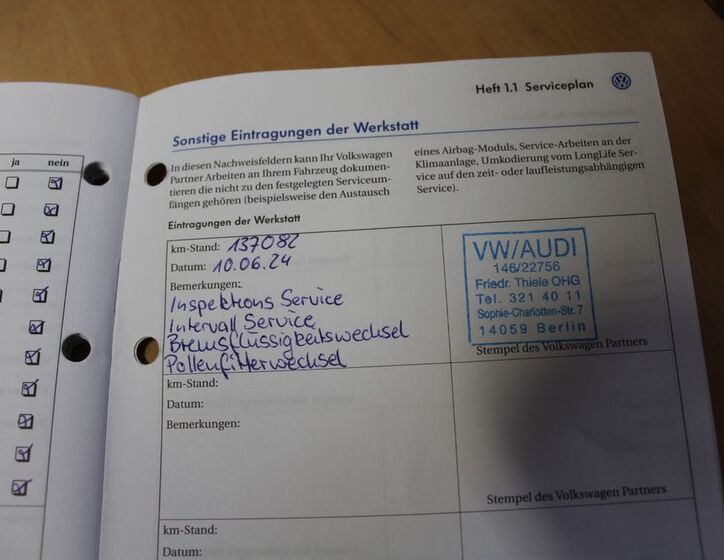 Heft 1.1 Serviceplan
Sonstige Eintragungen der Werkstatt
ja nein
In diesen Nachweisfeldern kann Ihr Volkswagen
Partner Arbeiten an Ihrem Fahrzeug dokumen-
tieren die nicht zu den festgelegten Serviceum-
fängen gehören (beispielsweise den Austausch
eines Airbag-Moduls, Service-Arbeiten an der
Klimaanlage, Umkodierung vom LongLife Ser-
vice auf den zeit- oder laufleistungsabhängigen
Service).
Eintragungen der Werkstatt
km-Stand: 137082
Datum: 10.06.24
Bemerkungen:
Inspektions Service
Intervall Service
Bremsflüssigkeitswechsel
Pollenfilterwechsel
VW/AUDI
146/22756
Friedr. Thiele OHG
Tel. 321 40 11
Sophie-Charlotten-Str. 7
14059 Berlin
Stempel des Volkswagen Partners
km-Stand:
Datum:
Bemerkungen:
Stempel des Volkswagen Partners
km-Stand:
Datum: